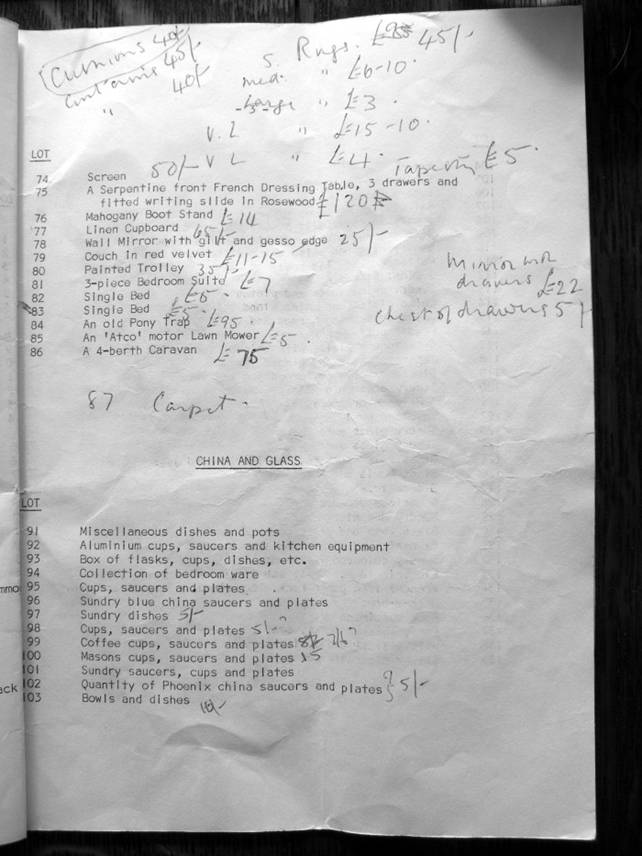 Cushions 40/-
45/-
" 40/-
S. Rugs. 45/-
med. " £6-10.
Large " £3.
V. L " £15-10.
50/- V L " £4. Tapestry £5.
LOT
74 Screen
75 A Serpentine front French Dressing Table, 3 drawers and
fitted writing slide in Rosewood £120
76 Mahogany Boot Stand £14
77 Linen Cupboard 65/-
78 Wall Mirror with gilt and gesso edge 25/-
79 Couch in red velvet £11-15
80 Painted Trolley 35/-
81 3-piece Bedroom Suite £7
Mirror
drawers £22
82 Single Bed £6.
83 Single Bed £5.
Chest of drawers 5/-
84 An old Pony Trap £95.
85 An 'Atco' motor Lawn Mower £5.
86 A 4-berth Caravan £75
87 Carpet.
CHINA AND GLASS
LOT
91 Miscellaneous dishes and pots
92 Aluminium cups, saucers and kitchen equipment
93 Box of flasks, cups, dishes, etc.
94 Collection of bedroom ware
95 Cups, saucers and plates
96 Sundry blue china saucers and plates
97 Sundry dishes 5/-
98 Cups, saucers and plates 5/-
99 Coffee cups, saucers and plates
100 Masons cups, saucers and plates 15
101 Sundry saucers, cups and plates
102 Quantity of Phoenix china saucers and plates 5/-
103 Bowls and dishes 10/-